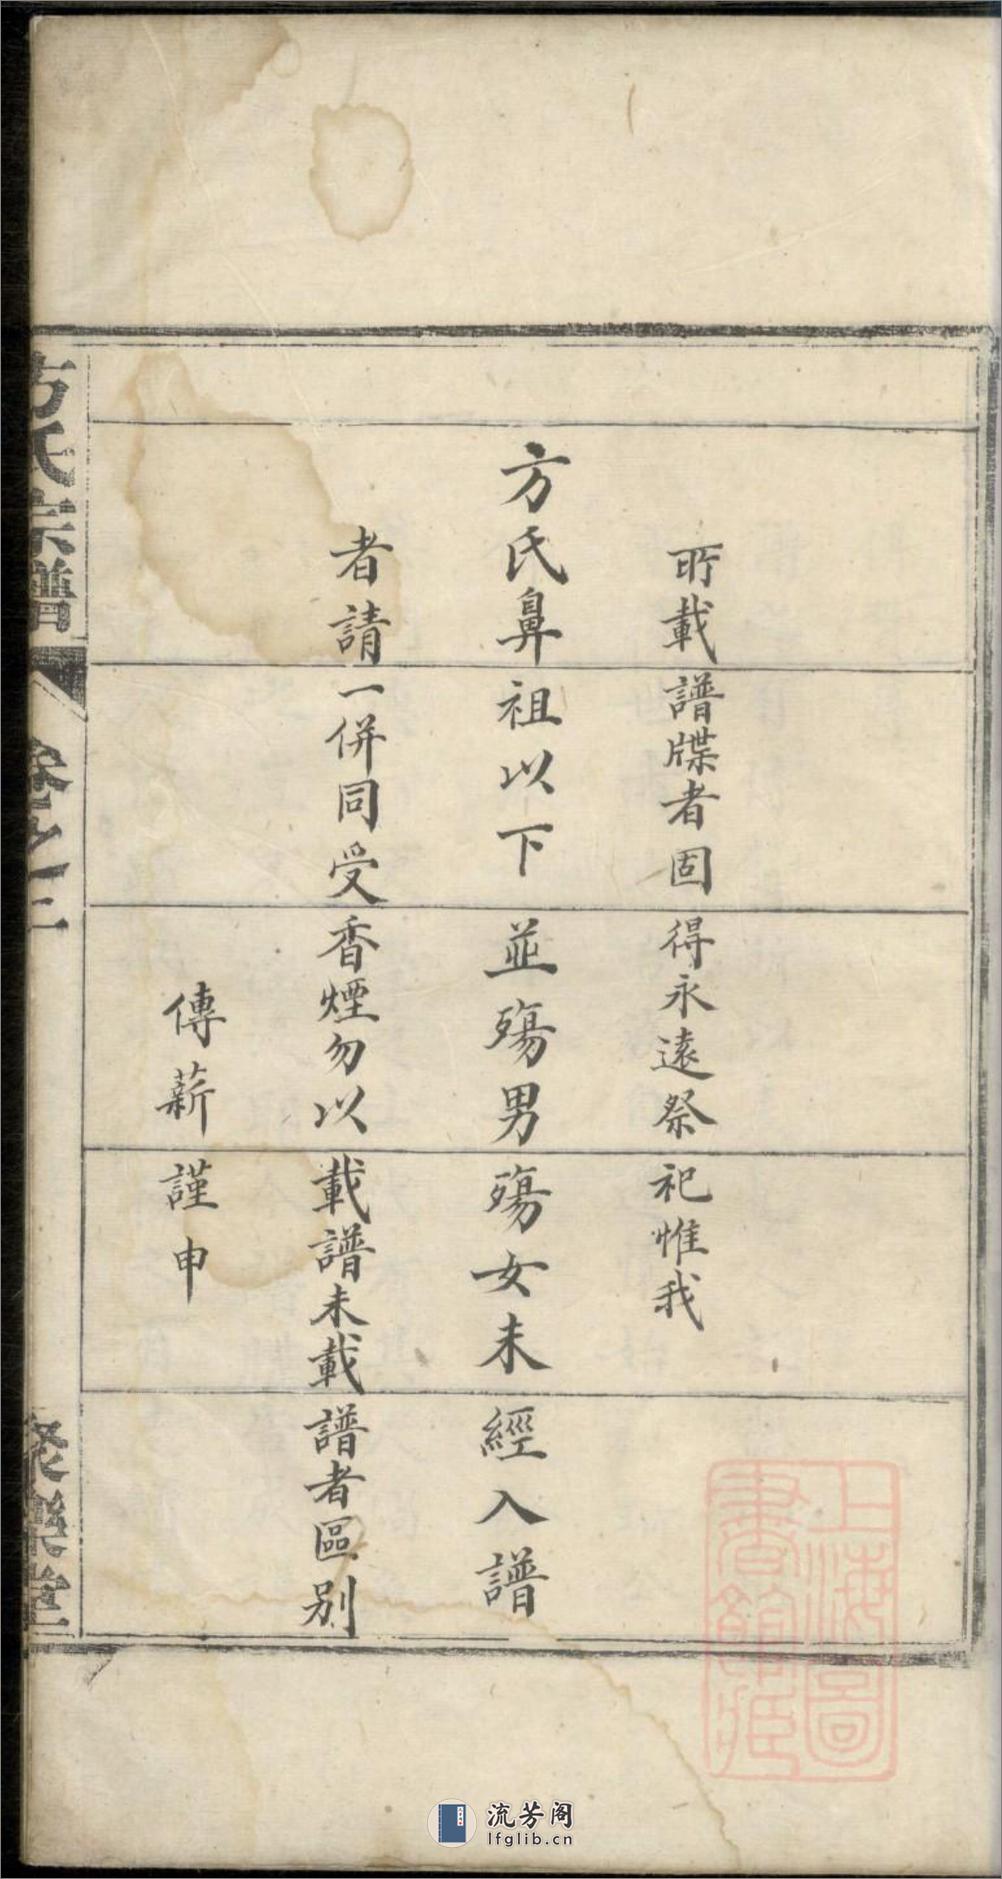 所載譜牒者固得永遠祭祀惟我
方氏鼻祖以下並殤男殤女未經入譜
者請一併同受香煙勿以載譜未載譜者區别
傳薪謹申
方氏宗譜
卷之三
聚樂堂
上海圖書館藏
流芳阁
lfglib.cn